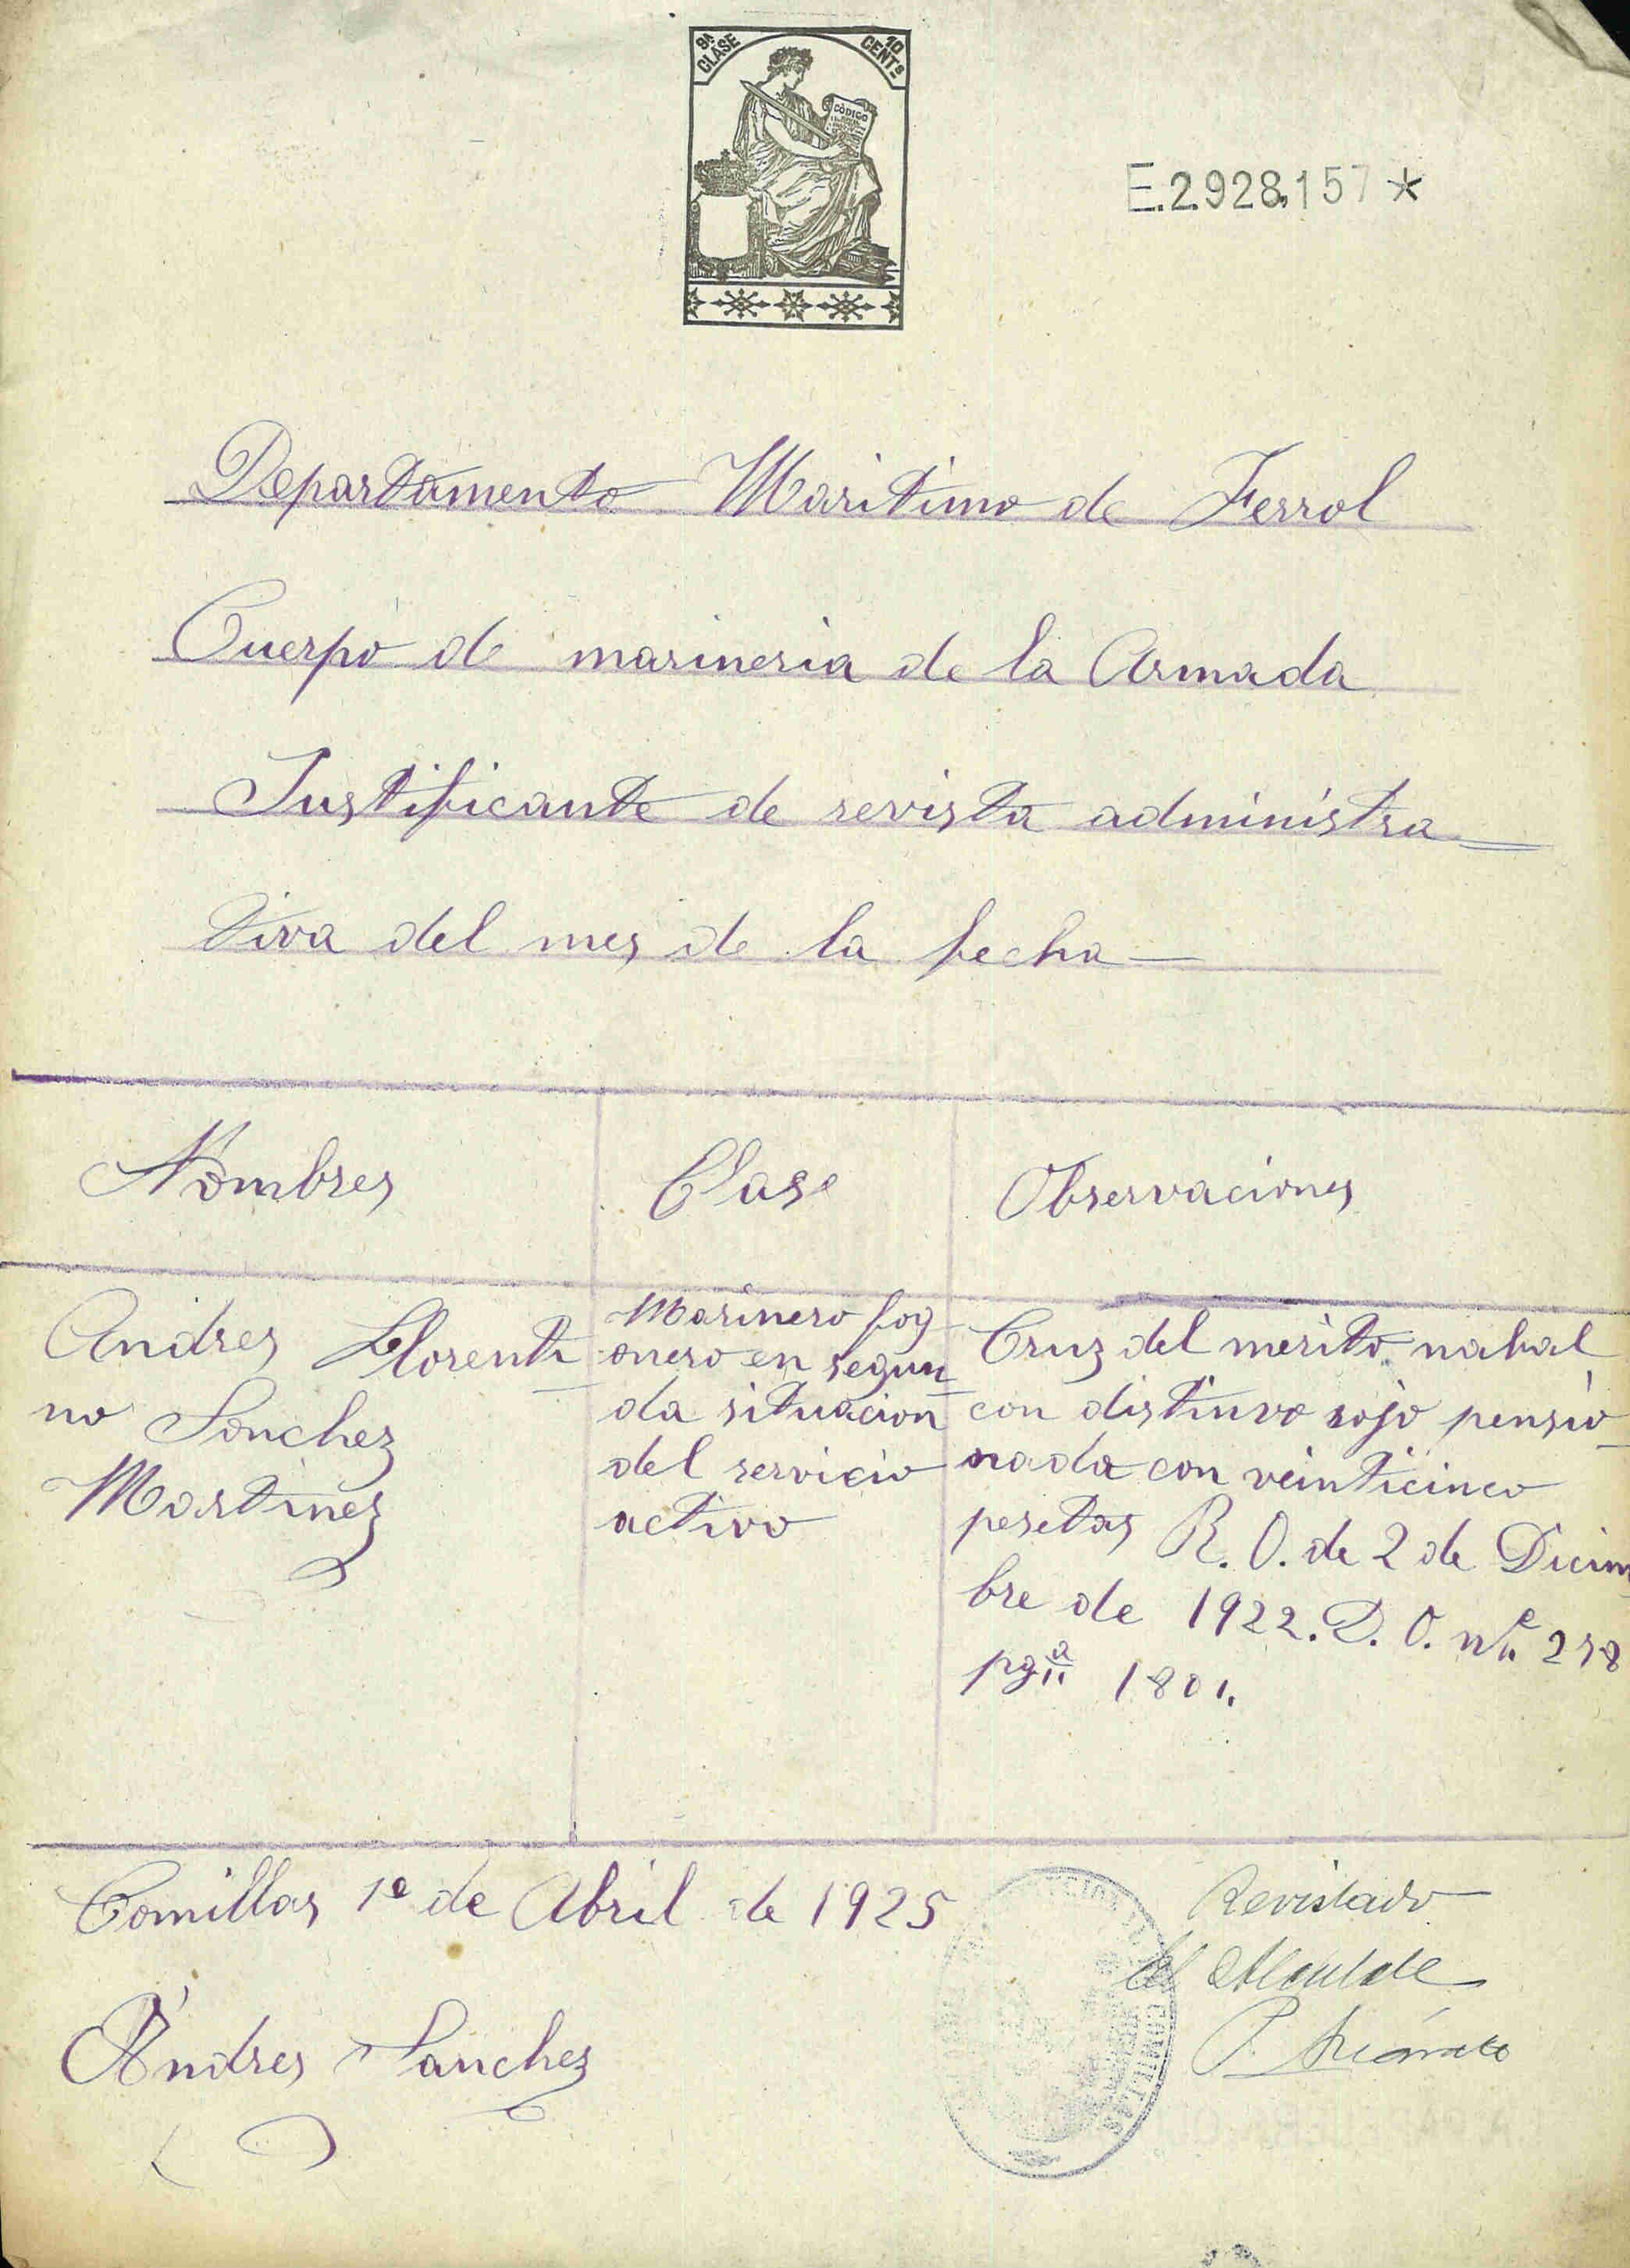 8ª CLASE
10 CENTS
CÓDIGO
E.2.928,157 *
Departamento Maritimo de Ferrol
Cuerpo de marineria de la Armada
Justificante de revista administra
tiva del mes de la fecha
Nombres
Clase
Observaciones
Andres Florenti
no Sonchez
Martinez
Marinero fog
onero en segun
da situacion
del servicio
activo
Cruz del merito nabal
con distinvo rojo pensio
nada con veinticinco
pesetas R. O. de 2 de Diciem
bre de 1922. D. O. nº 278
pgª 1801.
Comillas 1º de Abril de 1925
Andres Sanchez
Revistado
El Alcalde
COMILLAS